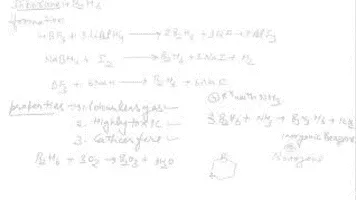 Diborane → B2H6
formation
4BF3 + 3LiAlH4 → 2B2H6 + 3LiF + 3AlF3
NaBH4 + I2 → B2H6 + 2NaI + H2
BF3 + 6NaH → B2H6 + 6NaF
properties → 1. Colourless gas
2. Highly toxic
3. Catches fire
B2H6 + 3O2 → B2O3 + H2O
with NH3
3 B2H6 + NH3 → B3N3H6 + H2
inorganic Benzene